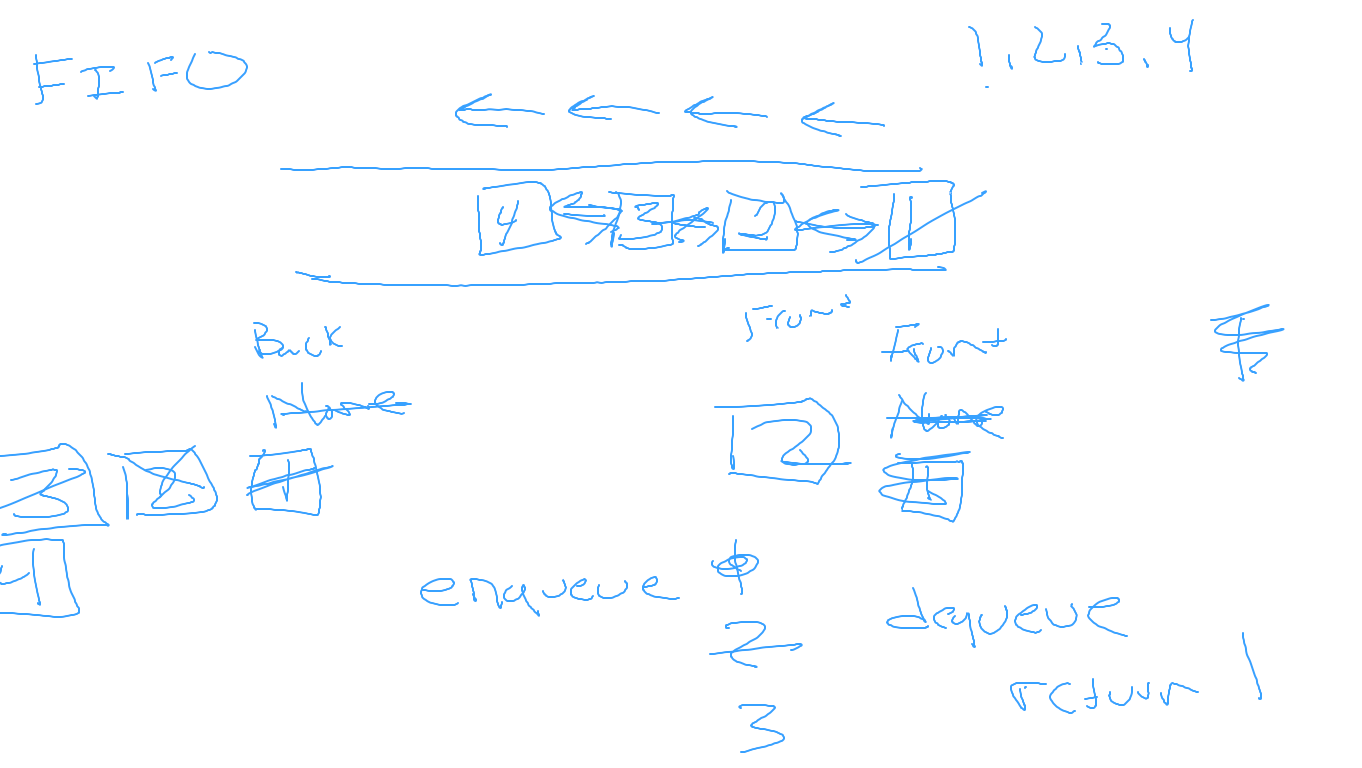 FIFO
1, 2, 3, 4
4 3 2 1
Back
None
1
2
3
4
Front
2
Front
None
1
enqueue
2
3
dequeue
return 1